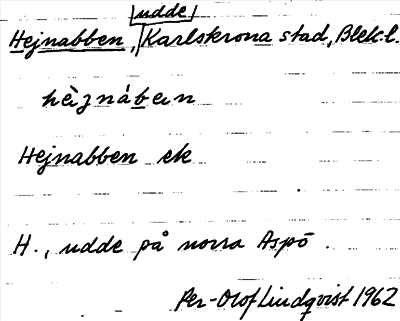 udde
Hejnabben, Karlskrona stad, Blek.l.
hèjnábein
Hejnabben ek
H., udde på norra Aspö.
Per-Olof Lindqvist 1962